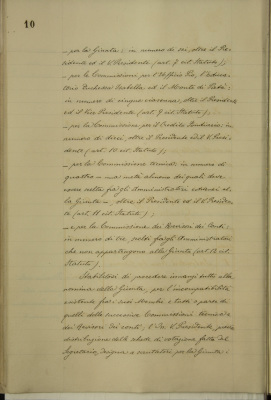 10
— per la Giunta: in numero di sei, oltre il Pre-
sidente ed il V. Presidente (art. 7 est. Statuto);
— per la Commissione per l'Ufficio Pio, l'
ed al Monte di Pietà:
in numero di cinque ciascuna, oltre il Presidente
ed il Vice Presidente (art. 9 est. Statuto);
— per la Commissione per il Credito Fondiario: in
numero di dieci, oltre il Presidente ed il V. Presi-
dente (art. 10 est. Statuto);
— per la Commissione : in numero di
quattro — una metà almeno dei quali deve
essere scelta fra gli Amministratori estranei al-
la Giunta —, oltre il Presidente ed il V. Presiden-
te (art. 11 est. Statuto);
— e per la Commissione dei Revisori dei Conti:
in numero di tre, scelti fra gli Amministratori
che non appartengono alla Giunta (art. 12 est.
Statuto).
Stabilitosi di procedere innanzi tutto alla
nomina della Giunta, per l'incompatibilità
esistente fra i suoi Membri e tutti o parte di
quelli delle Commissioni
dei Revisori dei conti, il Sr. V. Presidente, previa
distribuzione delle schede di votazione fatta dal
Segretario, a scrutatori per la Giunta: